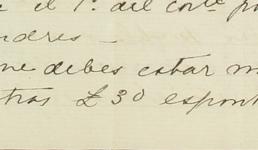 el 1º. del corte. p
ndres —
ne debes estar m
tras £30 espont